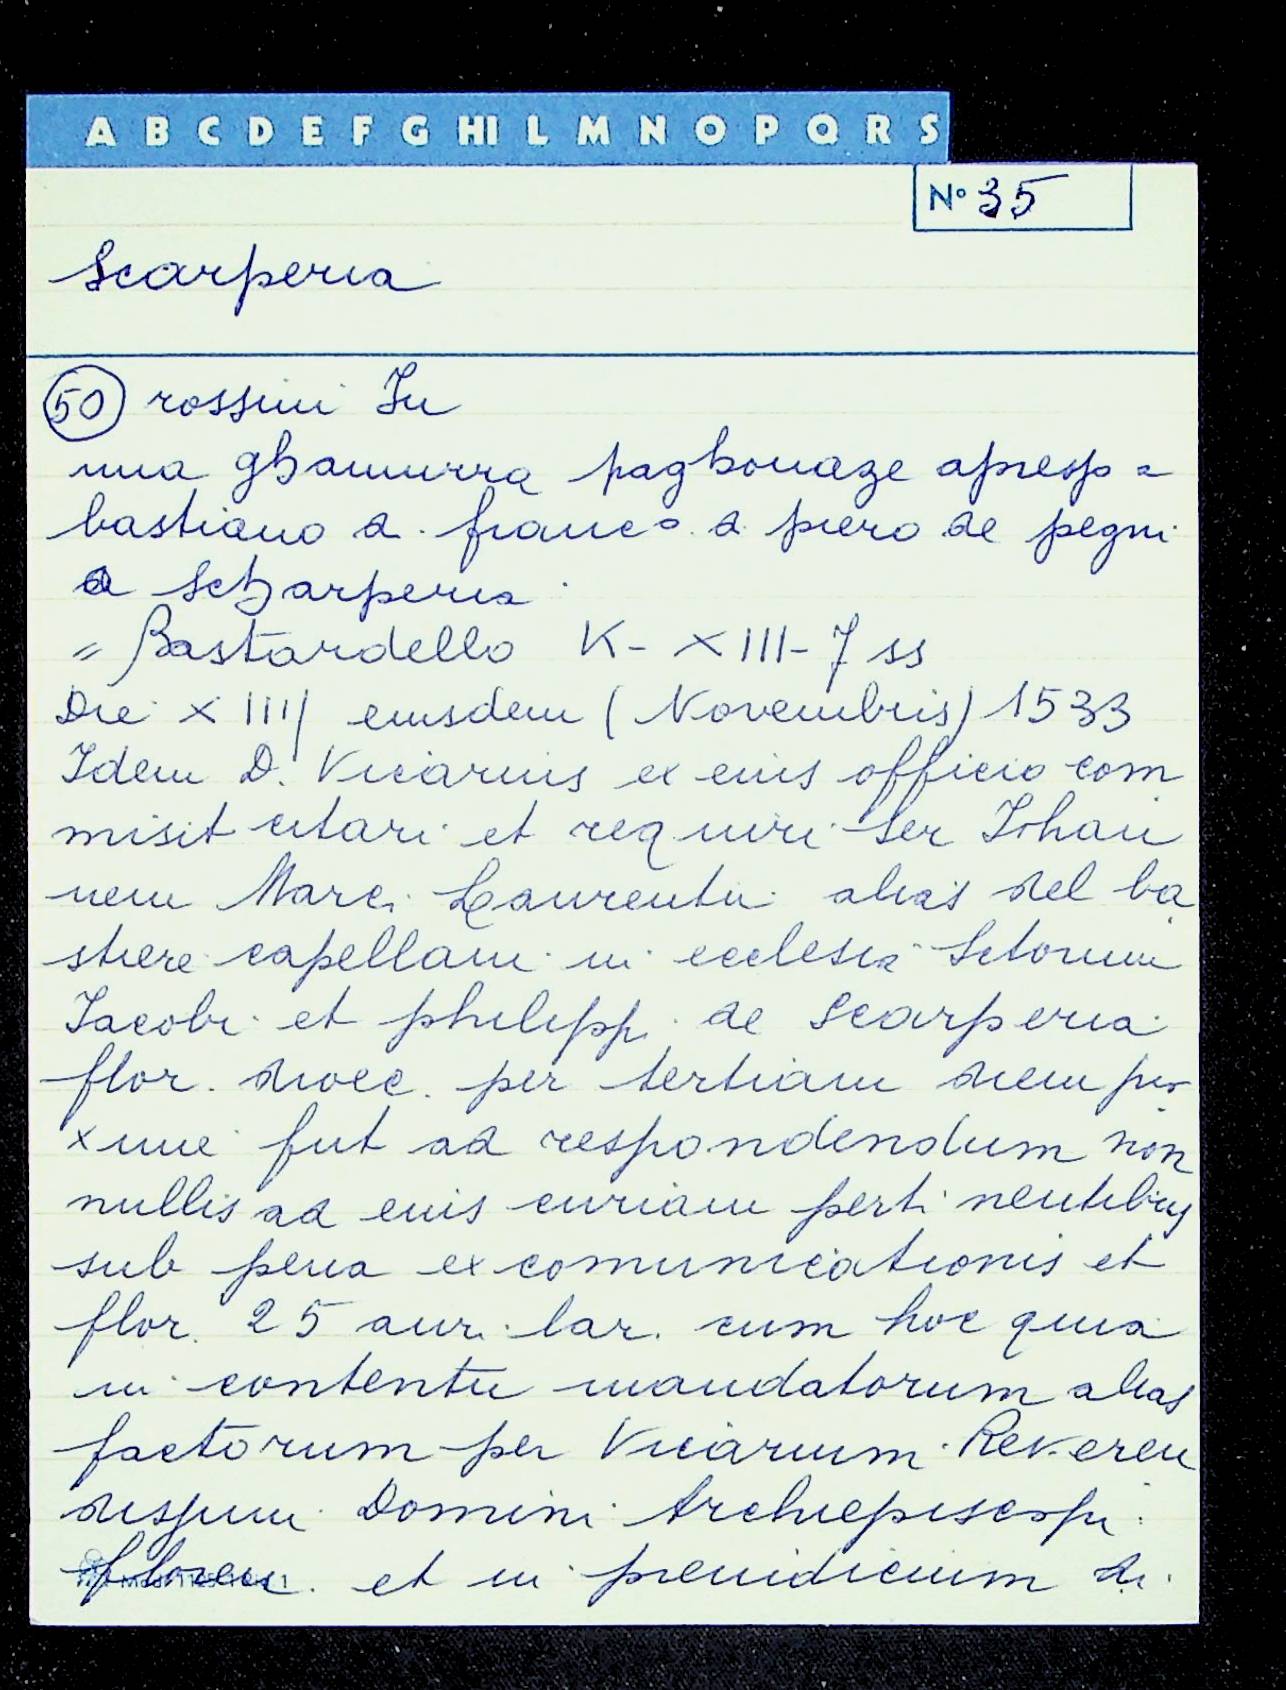 A B C D E F G HI L M N O P Q R S
N° 35
Scarperia
50 rossini In
una ghamurra pagbonaze apresso a
bastiano d. franc° d piero de pegni
a Scharperia
= Bastardello K- XIII-7 ss
Die XIIII eiusdem (Novembris) 1533
Idem D. Vicarius ex eius officio com
misit citari et requiri Ser Johan
nem Marci Laurentii alias del ba
stiere capellani in ecclesia Sctorum
Jacobi et philippi de Scarperia
flor. dioec. per tertiam diem pro
xime fut ad respondendum non
nullis ad eius curiam pertinentibus
sub pena excomunicationis et
flor. 25 aur. lar. cum hoc quia
in contentu mandatorum alias
factorum per Vicarium Reveren
dissimi Domini Archiepiscopi
floren. et in preiudicium di